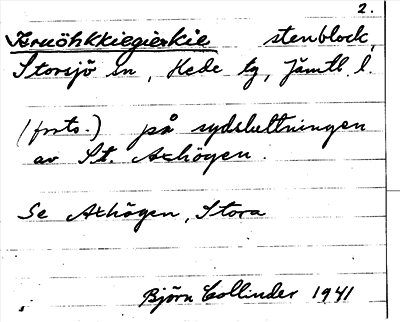 2.
Kruöhkkiegierkie stenblock,
Storsjö sn, Hede tg, Jämtl. l.
(forts.) på sydsluttningen
av St. Axhögen.
Se Axhögen, Stora
Björn Collinder 1941